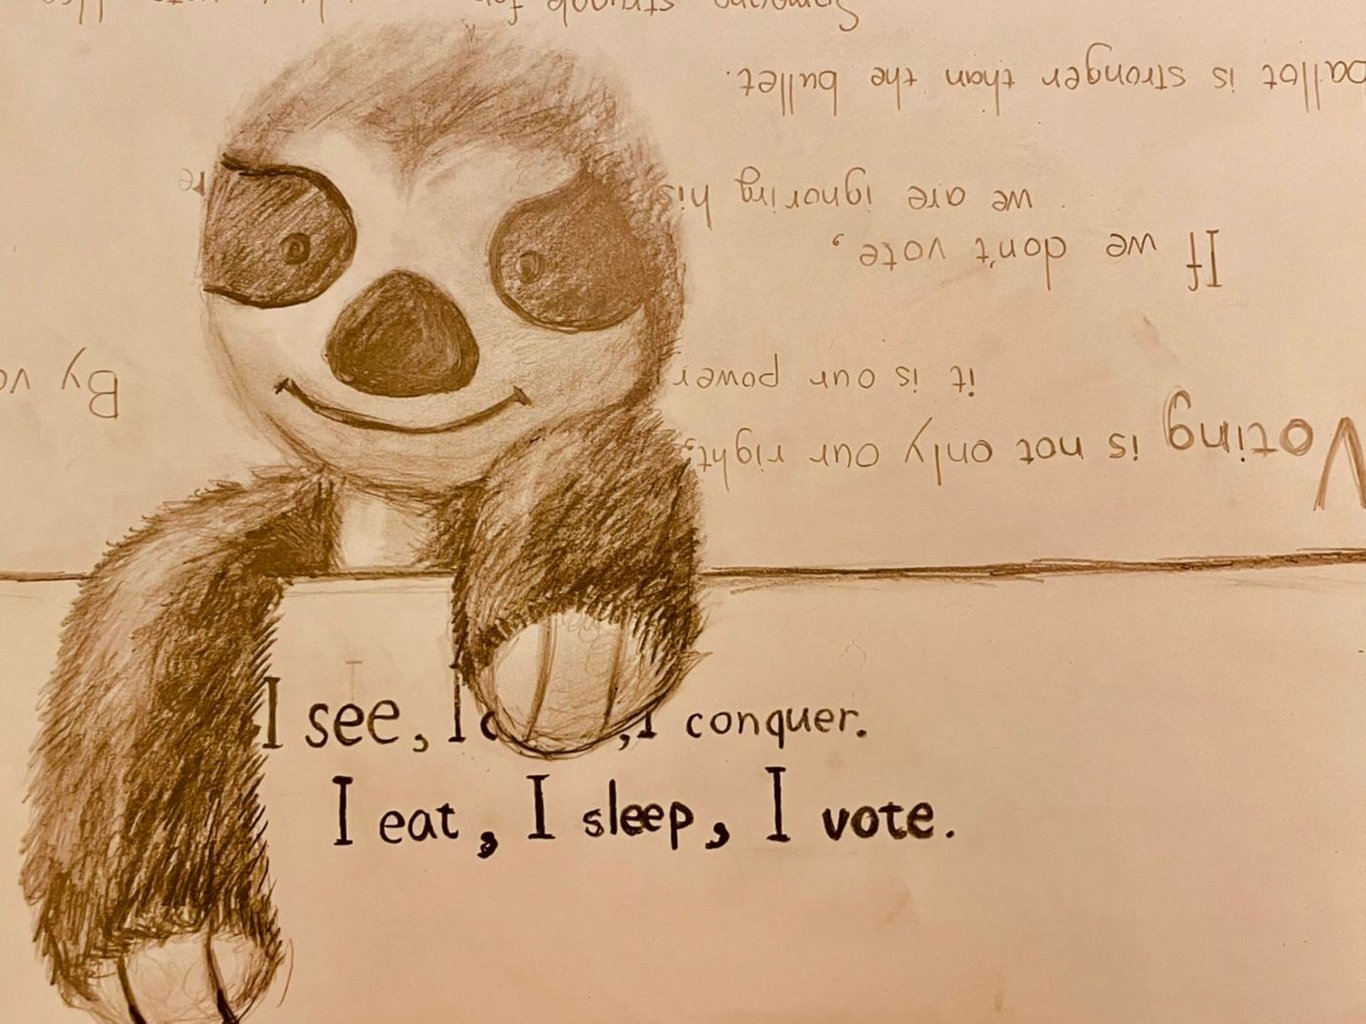 I see, I c , I conquer.
I eat, I sleep, I vote.
Voting is not only our right,
it is our power
By vo
If we don't vote,
we are ignoring his re
ballot is stronger than the bullet.
Someone struggle for